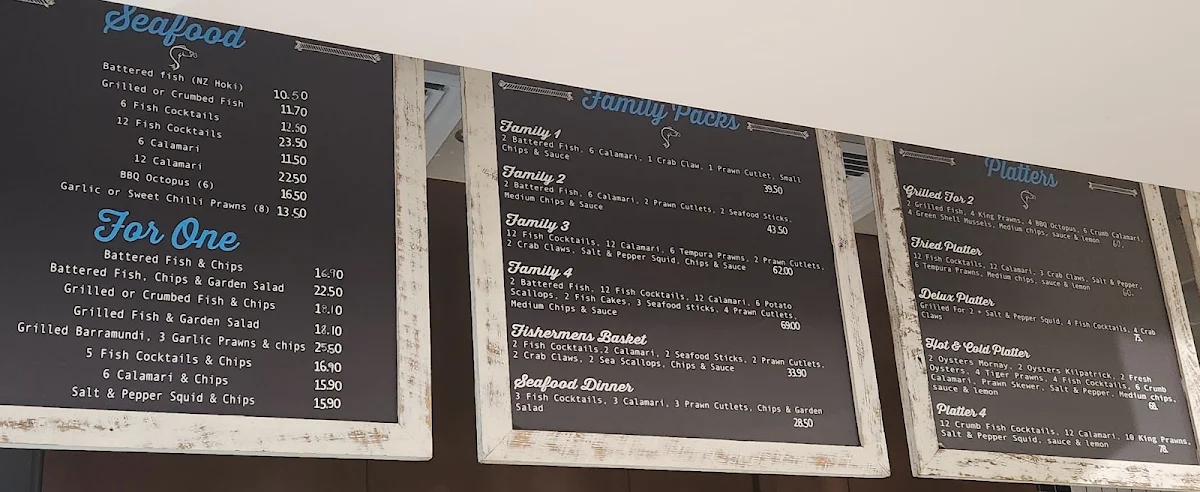 Seafood
Battered fish (NZ Hoki) 10.50
Grilled or Crumbed Fish 11.70
6 Fish Cocktails 12.50
12 Fish Cocktails 23.50
6 Calamari 11.50
12 Calamari 22.50
BBQ Octopus (6) 16.50
Garlic or Sweet Chilli Prawns (8) 13.50
For One
Battered Fish & Chips 16.90
Battered Fish, Chips & Garden Salad 22.50
Grilled or Crumbed Fish & Chips 18.10
Grilled Fish & Garden Salad 18.10
Grilled Barramundi, 3 Garlic Prawns & chips 25.50
5 Fish Cocktails & Chips 16.90
6 Calamari & Chips 15.90
Salt & Pepper Squid & Chips 15.90
Family Packs
Family 1
2 Battered Fish, 6 Calamari, 1 Crab Claw, 1 Prawn Cutlet, Small
Chips & Sauce
39.50
Family 2
2 Battered Fish, 6 Calamari, 2 Prawn Cutlets, 2 Seafood Sticks,
Medium Chips & Sauce
43.50
Family 3
12 Fish Cocktails, 12 Calamari, 6 Tempura Prawns, 2 Prawn Cutlets,
2 Crab Claws, Salt & Pepper Squid, Chips & Sauce 62.00
Family 4
2 Battered Fish, 12 Fish Cocktails, 12 Calamari, 6 Potato
Scallops, 2 Fish Cakes, 3 Seafood sticks, 4 Prawn Cutlets,
Medium Chips & Sauce
69.00
Fishermens Basket
2 Fish Cocktails,2 Calamari, 2 Seafood Sticks, 2 Prawn Cutlets,
2 Crab Claws, 2 Sea Scallops, Chips & Sauce
33.90
Seafood Dinner
3 Fish Cocktails, 3 Calamari, 3 Prawn Cutlets, Chips & Garden
Salad
28.50
Platters
Grilled For 2
2 Grilled Fish, 4 King Prawns, 4 BBQ Octopus, 6 Crumb Calamari,
4 Green Shell Mussels, Medium chips, sauce & lemon 60.
Fried Platter
12 Fish Cocktails, 12 Calamari, 3 Crab Claws, Salt & Pepper,
6 Tempura Prawns, Medium chips, sauce & lemon 60.
Delux Platter
Grilled For 2 + Salt & Pepper Squid, 4 Fish Cocktails, 4 Crab
Claws
75.
Hot & Cold Platter
2 Oysters Mornay, 2 Oysters Kilpatrick, 2 Fresh
Oysters, 4 Tiger Prawns, 4 Fish Cocktails, 6 Crumb
Calamari, Prawn Skewer, Salt & Pepper, Medium chips,
sauce & lemon
68.
Platter 4
12 Crumb Fish Cocktails, 12 Calamari, 10 King Prawns,
Salt & Pepper Squid, sauce & lemon
78.